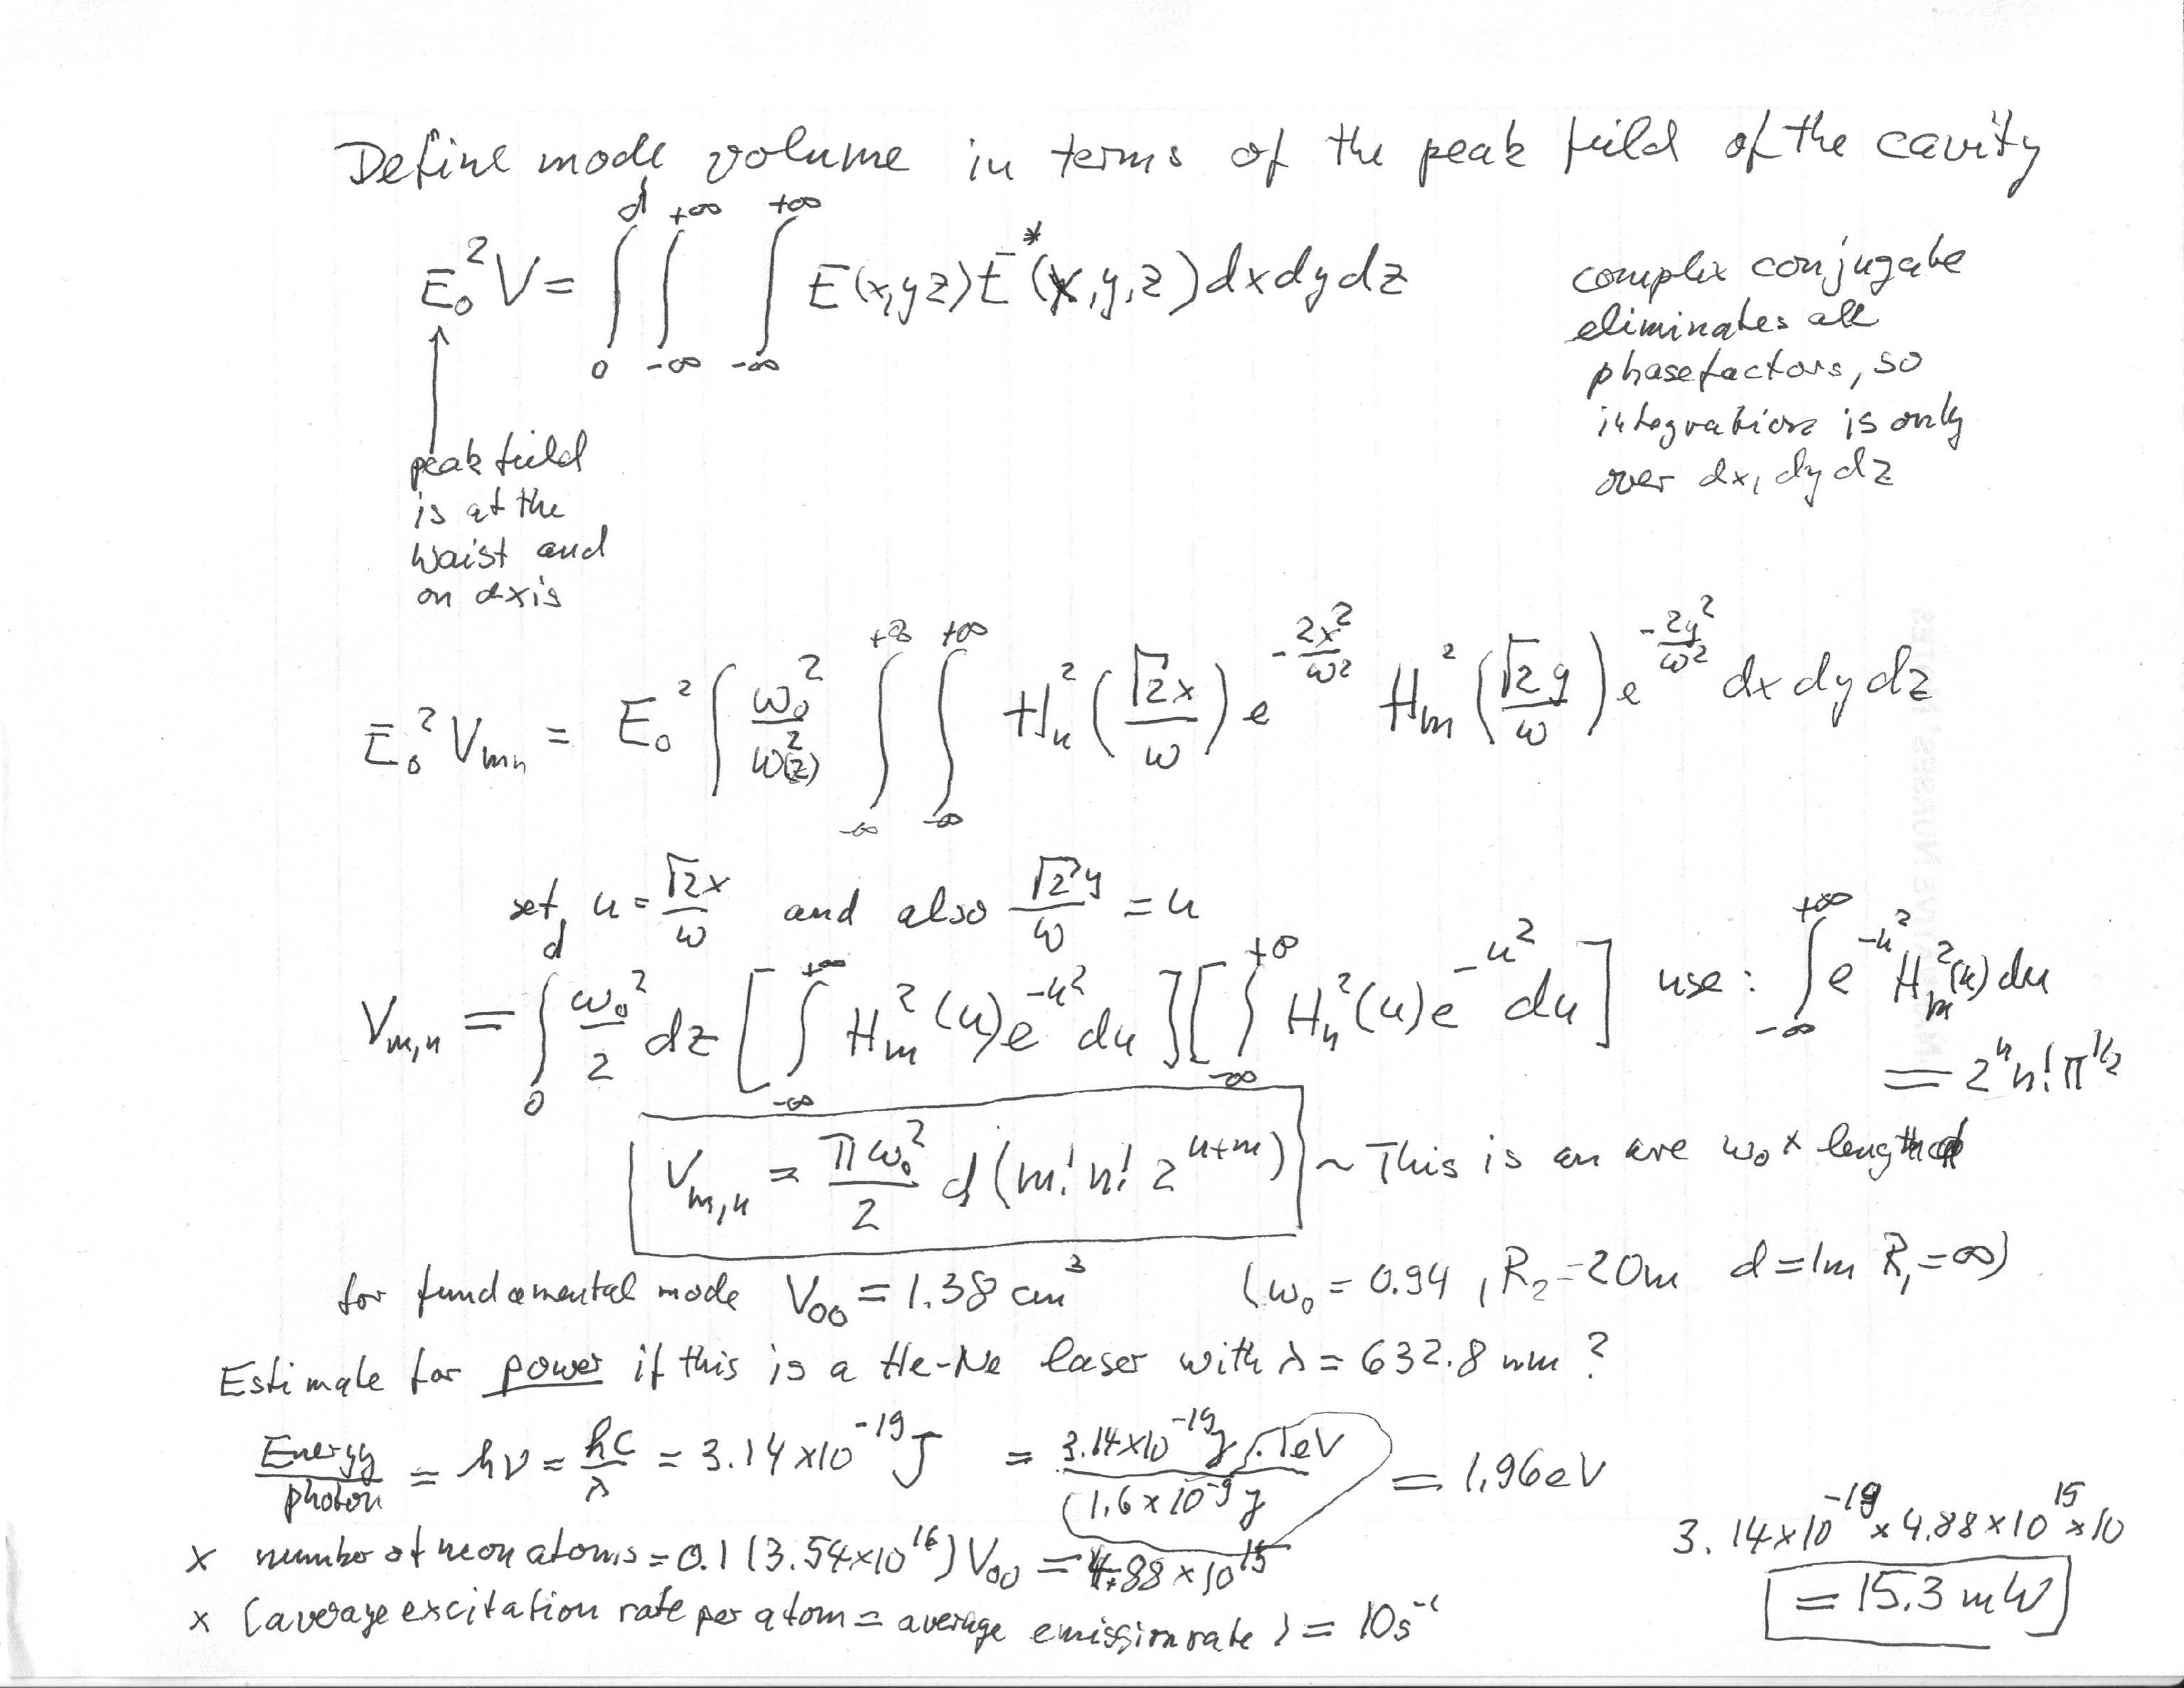 Define mode volume in terms of the peak field of the cavity
E₀² V = ∫₀^d ∫_{-∞}^{+∞} ∫_{-∞}^{+∞} E(x,y z) E*(x,y,z) dx dy dz
complex conjugate
eliminates all
phasefactors, so
integration is only
over dx, dy dz
peak field
is at the
waist and
on axis
E₀² V_{mn} = E₀² ∫ ω₀²/ω²(z) ∫_{-∞}^{+∞} ∫_{-∞}^{+∞} H_n²(√2x/ω) e^{-2x²/ω²} H_m²(√2y/ω) e^{-2y²/ω²} dx dy dz
set u = √2x/ω and also √2y/ω = u
V_{m,n} = ∫₀^d ω₀²/2 dz [∫_{-∞}^{+∞} H_m²(u) e^{-u²} du][∫_{-∞}^{+∞} H_n²(u) e^{-u²} du] use: ∫_{-∞}^{+∞} e^{-u²} H_m²(u) du
= 2ⁿ n! π^{1/2}
V_{m,n} = πω₀²/2 d (m! n! 2^{n+m}) ~ This is an are ω₀ x length d
for fundamental mode V₀₀ = 1.38 cm³ (ω₀ = 0.94, R₂ = 20m d = 1m R₁ = ∞)
Estimate for power if this is a He-Ne laser with λ = 632.8 nm ?
Energy/photon = hν = hc/λ = 3.14 x10^{-19} J = 3.14x10^{-19} J . 1eV / (1.6 x 10^{-9} J = 1.96eV
x number of neon atoms = 0.1 (3.54x10^{16}) V₀₀ = 4.88 x 10^{15}
x (average excitation rate per atom = average emission rate) = 10s^{-1}
3.14x10^{-19} x 4.88 x10^{15} x10
= 15.3 mW